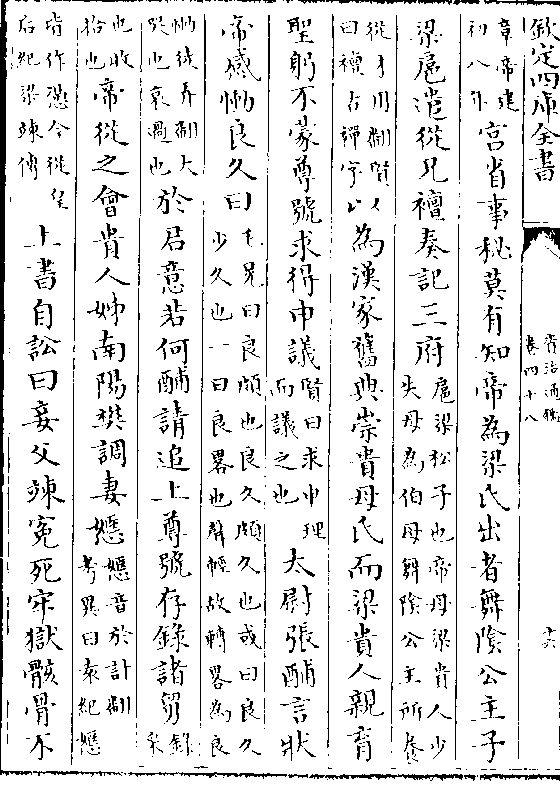 欽定四庫全書
資治通鑑
卷四十八
十六
章帝建
初八年
宮省事秘莫有知帝為梁氏出者舞陰公主子
梁扈遣從兄禯奏記三府
扈梁松子也帝母梁貴人少
失母為伯母舞陰公主所養
從才用翻賢
曰禯古禪字
以為漢家舊典崇貴母氏而梁貴人親育
聖躬不蒙尊號求得申議
賢曰求申理
而議之也
太尉張酺言狀
帝感慟良久曰
毛晃曰良頗也良久頗久也或曰良久
少久也一曰良畧也聲輕故轉畧為良
慟徒弄翻大
哭也哀過也
於君意若何酺請追上尊號存錄諸舅
錄
采
也收
拾也
帝從之會貴人姊南陽樊調妻嫕
嫕音於計翻
考異曰袁紀嫕
皆作憑今從皇
后紀梁竦傳
上書自訟曰妾父竦冤死牢獄骸骨不